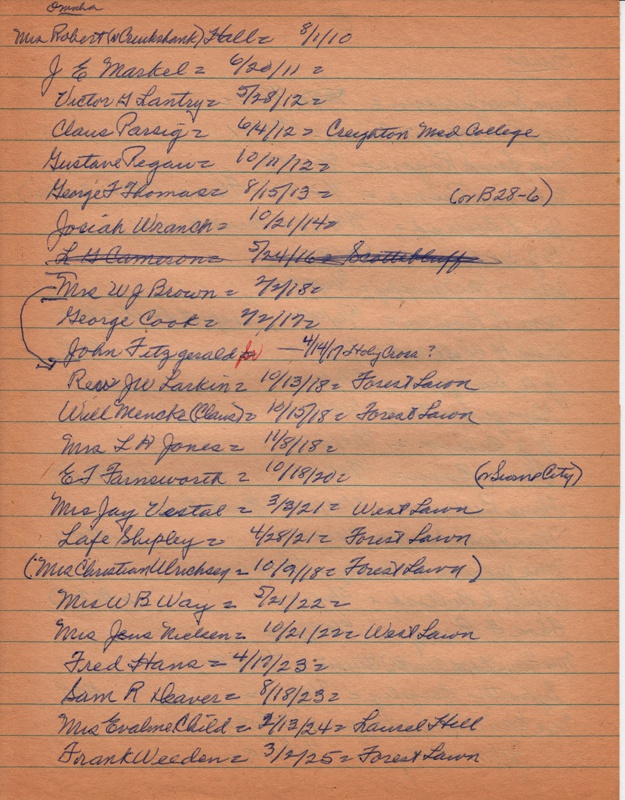 Omaha
Mrs Robert (n Cruickshank) Hall = 8/1/10
J E Markel = 6/20/11 =
Victor G Lantry = 5/28/12 =
Claus Parsig = 6/4/12 = Creighton Med College
Gustave Pegau = 10/11/12 =
George F Thomas = 8/15/13 (or B28-6)
Josiah Wranch = 10/21/14 =
L G Cameron = 5/24/16 = Scottsbluff
Mrs W J Brown = 2/2/18 =
George Cook = 2/2/17 =
John Fitzgerald Jr — 4/14/17 Holy Cross ?
Rev JW Larkin = 10/13/18 = Forest Lawn
Will Mencke (Claus) = 10/15/18 = Forest Lawn
Mrs L A Jones = 11/8/18 =
E T Farnsworth = 10/18/20 = (or Sioux City)
Mrs Jay Vestal = 3/3/21 = West Lawn
Lafe Shipley = 4/28/21 = Forest Lawn
(Mrs Christian Ulrichsen = 10/9/18 = Forest Lawn)
Mrs W B Way = 5/21/22 =
Mrs Jens Nielsen = 10/21/22 = West Lawn
Fred Hans = 4/17/23 =
Sam R Deaver = 8/18/23 =
Mrs Evaline Child = 2/13/24 = Laurel Hill
Frank Weeden = 3/2/25 = Forest Lawn